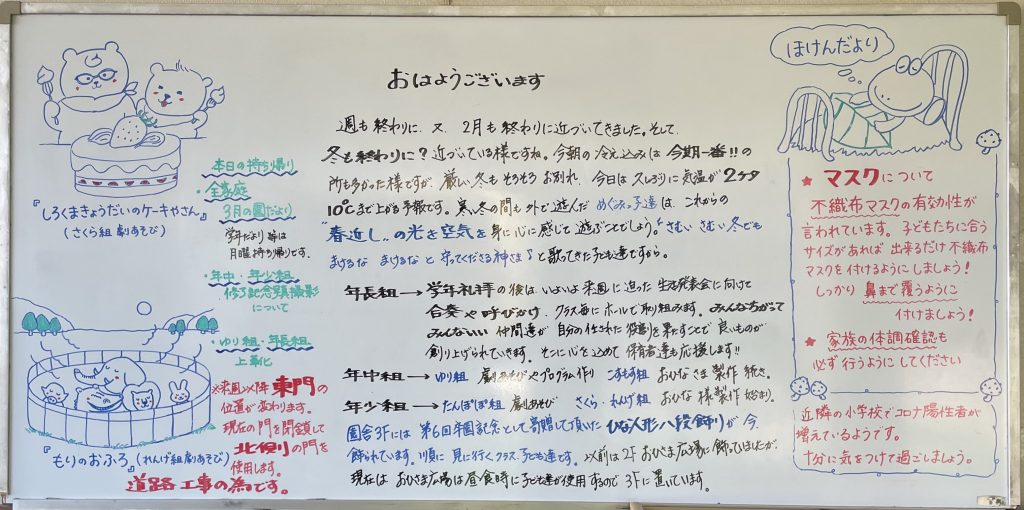 おはようございます
週も終わりに、又、2月も終わりに近づいてきました。そして、
冬も終わりに？近づいている様ですね。今朝の冷え込みは今期一番!!の
所も多かった様ですが、厳しい冬もそろそろお別れ、今日は久しぶりに気温が2ケタ
10℃まで上がる予報です。寒い冬の間も外で遊んだ めぐみっ子達は、これからの
"春近し"の光を空気を身に心に感じて遊ぶことでしょう。"さむい さむい 冬でも
まけるな まけるなと 守ってくださる神さま♪と歌ってきた子ども達ですから。
年長組→学年礼拝の後は、いよいよ来週に迫った生活発表会に向けて
合奏や呼びかけ、クラス毎にホールで取り組みます。みんなちがって
みんないい 仲間達が 自分の任された役割を果すことで 良いものが
創り上げられていきます。そこに心を込めて 保育者達も応援します!!
年中組→ゆり組 劇あそびやプログラム作り こすもす組 おひなさま製作 続き。
年少組→たんぽぽ組 劇あそび さくら・れんげ組 おひな様製作 始まり。
園舎3Fには 第6回卒園記念として寄贈して頂いた ひな人形八段飾りが 今、
飾られています。順に見に行くクラス、子ども達です。以前は2Fおひさま広場に飾っていましたが、
現在は おひさま広場は昼食時に子ども達が使用するので 3Fに置いています。
『しろくまきょうだいのケーキやさん』
(さくら組 劇あそび)
本日の持ち帰り
・全家庭
3月の園だより
学年だより等は
月曜持ち帰りです。
・年中・年少組
修了記念写真撮影
について
・ゆり組・年長組
上靴
『もりのおふろ』(れんげ組劇あそび)
※来週以降 東門の
位置が変わります。
現在の門を閉鎖して
北側の門を
使用します。
道路工事の為です。
ほけんだより
★ マスクについて
不織布マスクの有効性が
言われています。子どもたちに合う
サイズがあれば 出来るだけ不織布
マスクを付けるようにしましょう！
しっかり 鼻まで覆うように
付けましょう！
★ 家族の体調確認も
必ず行うようにしてください
近隣の小学校でコロナ陽性者が
増えているようです。
十分に気をつけて過ごしましょう。